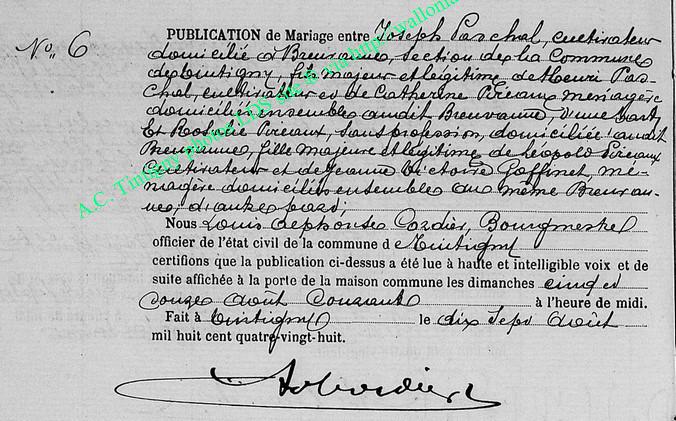 No. 6
PUBLICATION de Mariage entre Joseph Paschal, cultivateur
domicilié à Breuvanne, section de la Commune
de Tintigny, fils majeur et légitime de Henri Pas-
chal, cultivateur et de Catherine Piréaux ménagère
domiciliés ensembles audit Breuvanne, d'une part,
Et Rosalie Pireaux, sans profession, domiciliée audit
Breuvanne, fille majeure et légitime de Léopold Pireaux
Cultivateur et de Jeanne Victoire Goffinet, mé-
nagère domiciliés ensembles au même Breuvan-
ne, d'autre part;
Nous Louis Alphonse Cordier, Bourgmestre
officier de l'état civil de la commune de Tintigny
certifions que la publication ci-dessus a été lue à haute et intelligible voix et de
suite affichée à la porte de la maison commune les dimanches cinq et
douze Août Courant à l'heure de midi.
Fait à Tintigny le dix sept Août
mil huit cent quatre-vingt-huit.
A.C. Tintigny photo LDS site via http://wallonia